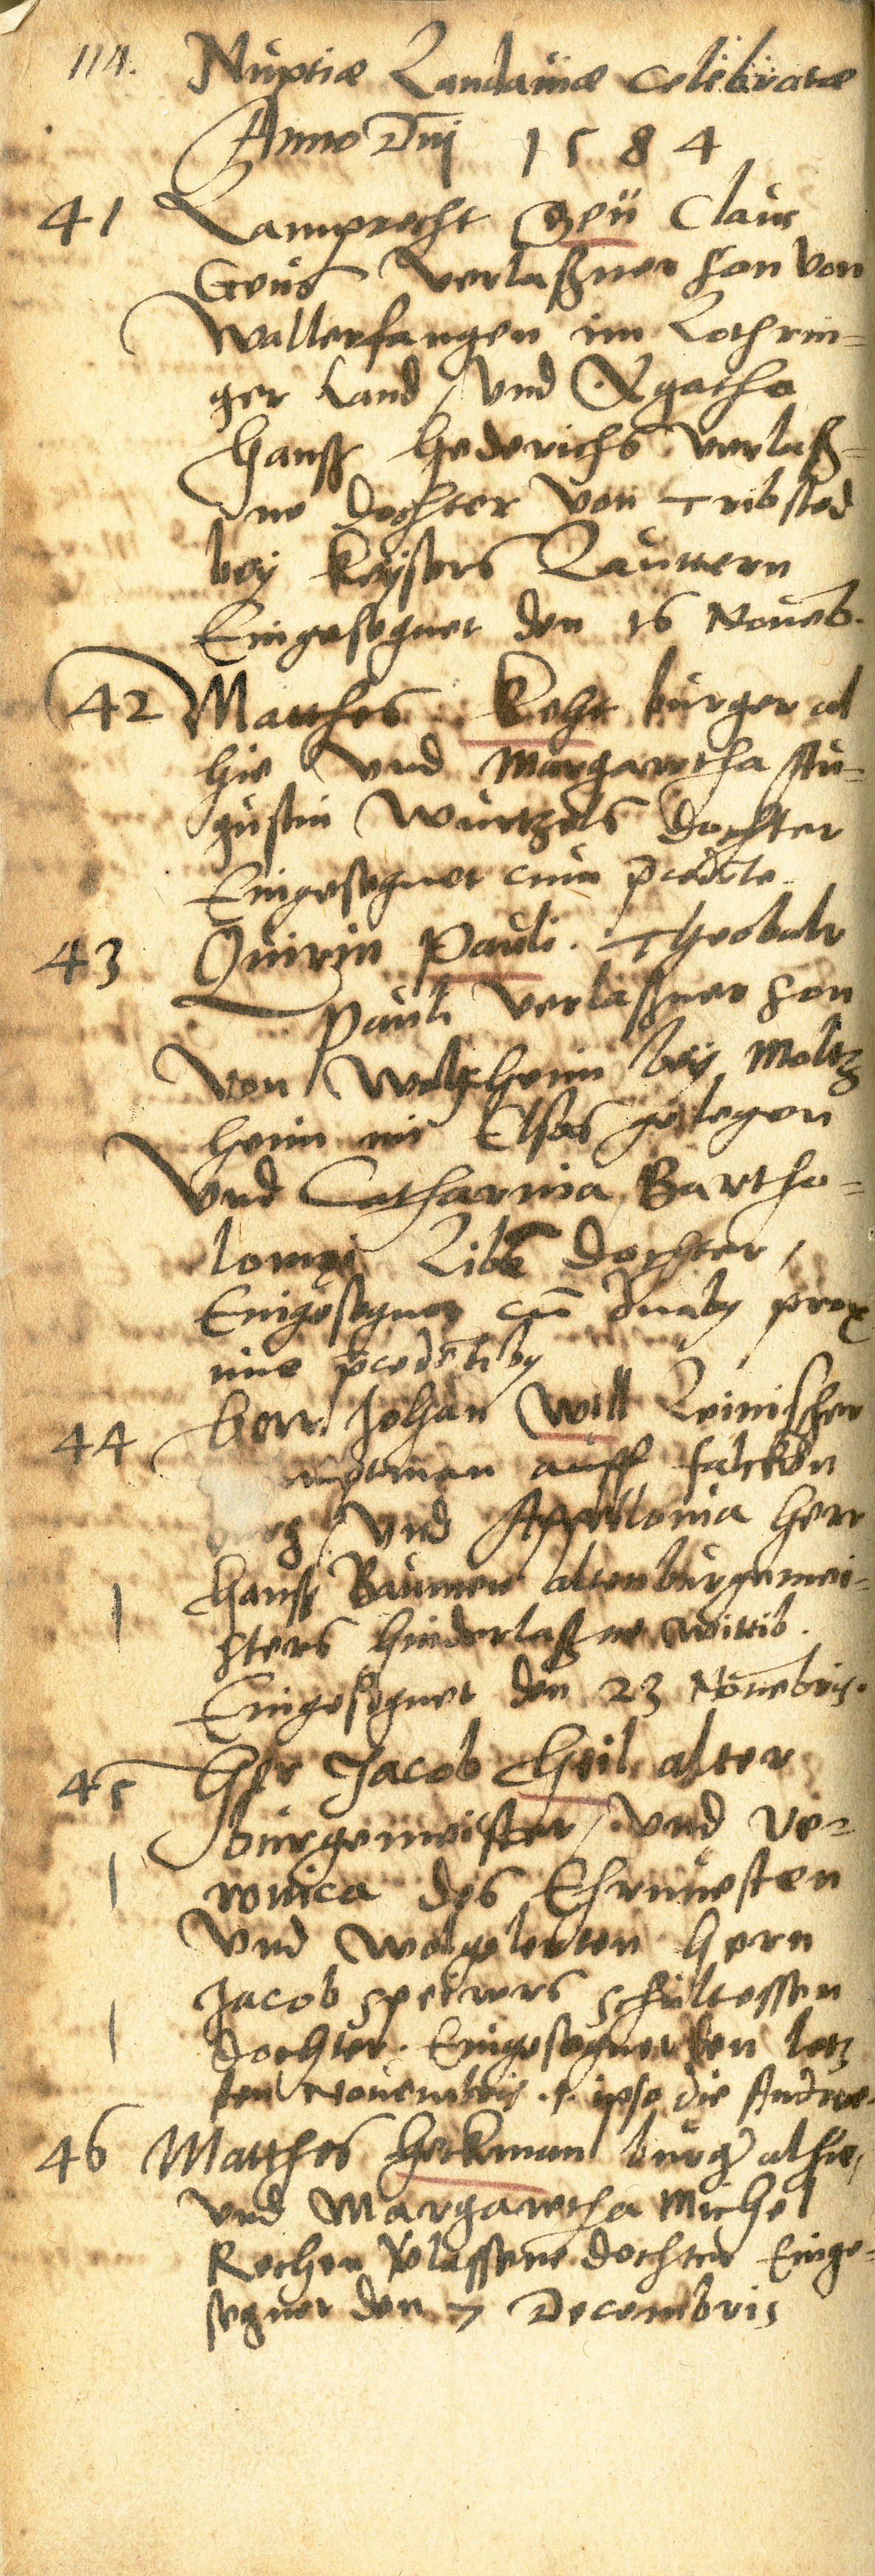 114. Nuptiæ Landaviæ celebratæ
Anno Dni 1584
41 Lamprecht Geü Claus
Geus verlaßner son von
Wallerfangen im Lothrin=
ger Land / und Agatha
Hanß Hederichs verlaß=
ne dochter von Tribsted
bey Keysers Lauttern
Eingesegnet den 16 Noueb.
42 Matthes Kehr burger al
hie und Margaretha Au=
gustin Wurtzels dochter
Eingesegnet cum pcedēte
43 Quirin Pauli. Theobalt
Pauli verlaßner son
von Wolxheim bey Moltz
heim im Elsas gelegen
Und Catharina Bartho=
lomei dochter /
Eingesegnet cū duabq prox
ime pcedētibq
44 Herr Johan Will Leinischer
mptman auff falcken
burg / Und Appollonia Herr
Hanß Baumen alten burgemei=
sters hinderlaßne wittib.
Eingesegnet den 23 Nouēbris.
45 Her Jacob Heil alter
burgemeister /. und Ve=
ronica des Ehrnuesten
Und wolgelerten Hern
Jacob speirers schultessen
dochter. Eingesegnet den letz
sten Nouembris .s. ipso die Andreæ.
46 Matthes Heckman burger alhie,
und Margaretha Michel
Rechen vlassene dochter Einge=
segnet den 7 Decembris